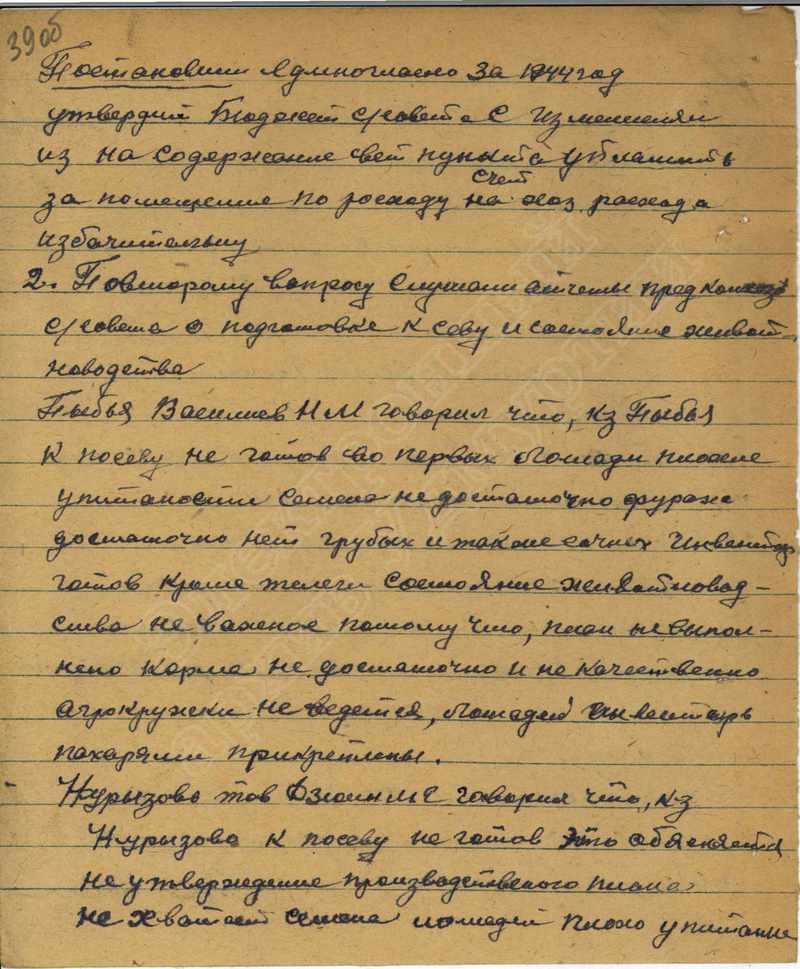 39 об
Постановили Единогласно За 1944 год
утвердит Бюджет с/совета С изменением
из на содержание вет пункта уплатить
счет
за помещение по росходу на хоз расхода
избачительну
2. Повторому вопросу слушали отчеты пред колхоз
с/совета о подготовке к севу и состояние живот
новодства
Пыбья Василиев Н М говорил что, кз Пыбья
К посеву не готов во первых лошади плохие
упитаности семена недостаточно фураже
достаточно нет грубых и также сочних Инвентар
готов кроме телеги состояние животновод-
ства не важное потому что, план не выпол-
нено корма не достаточно и не качественно
агрокружки не ведется, лошадей инвентарь
пахарями прикреплены.
Нурызово тов Дзюин М С говорил что, кз
Нурызово к посеву не готов это обясняется
не утверждение производственого плана
не хватает семена лошадей плохо упитание